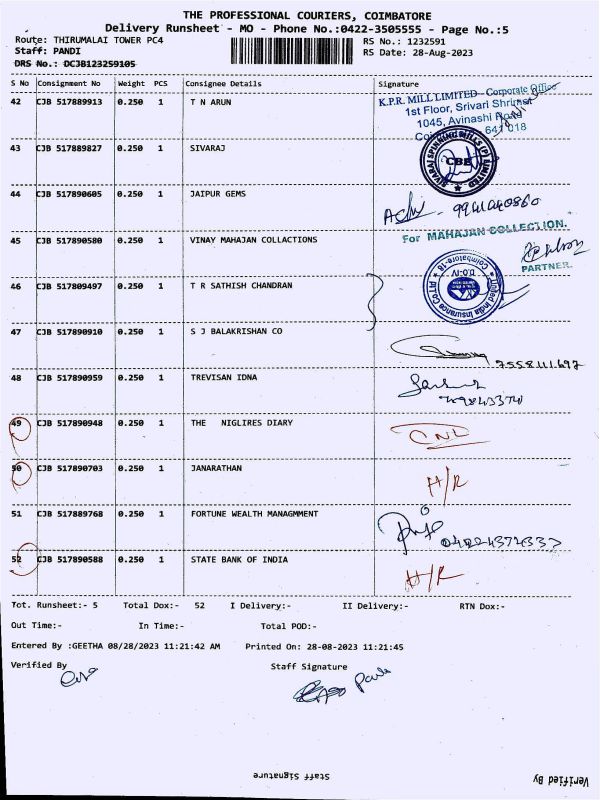 THE PROFESSIONAL COURIERS, COIMBATORE
Delivery Runsheet - MO - Phone No.:0422-3505555 - Page No.:5
Route: THIRUMALAI TOWER PC4 RS No.: 1232591
Staff: PANDI RS Date: 28-Aug-2023
DRS No.: DCJB123259105
S No Consignment No Weight PCS Consignee Details Signature
42 CJB 517889913 0.250 1 T N ARUN
K.P.R. MILL LIMITED - Corporate Office
1st Floor, Srivari Shrimat
1045, Avinashi Road
641 018
43 CJB 517889827 0.250 1 SIVARAJ
SIVARAJ SPINNING MILLS (P) LIMITED
CBE
44 CJB 517890605 0.250 1 JAIPUR GEMS
45 CJB 517890580 0.250 1 VINAY MAHAJAN COLLACTIONS
For MAHAJAN COLLECTION.
PARTNER.
46 CJB 517809497 0.250 1 T R SATHISH CHANDRAN
United India Insurance Co
Coimbatore-18
47 CJB 517890910 0.250 1 S J BALAKRISHAN CO
7558111697
48 CJB 517890959 0.250 1 TREVISAN IDNA
49 CJB 517890948 0.250 1 THE NIGLIRES DIARY
CNL
50 CJB 517890703 0.250 1 JANARATHAN
H/R
51 CJB 517889768 0.250 1 FORTUNE WEALTH MANAGMMENT
52 CJB 517890588 0.250 1 STATE BANK OF INDIA
H/R
Tot. Runsheet:- 5 Total Dox:- 52 I Delivery:- II Delivery:- RTN Dox:-
Out Time:- In Time:- Total POD:-
Entered By :GEETHA 08/28/2023 11:21:42 AM Printed On: 28-08-2023 11:21:45
Verified By Staff Signature
Staff Signature Verified By